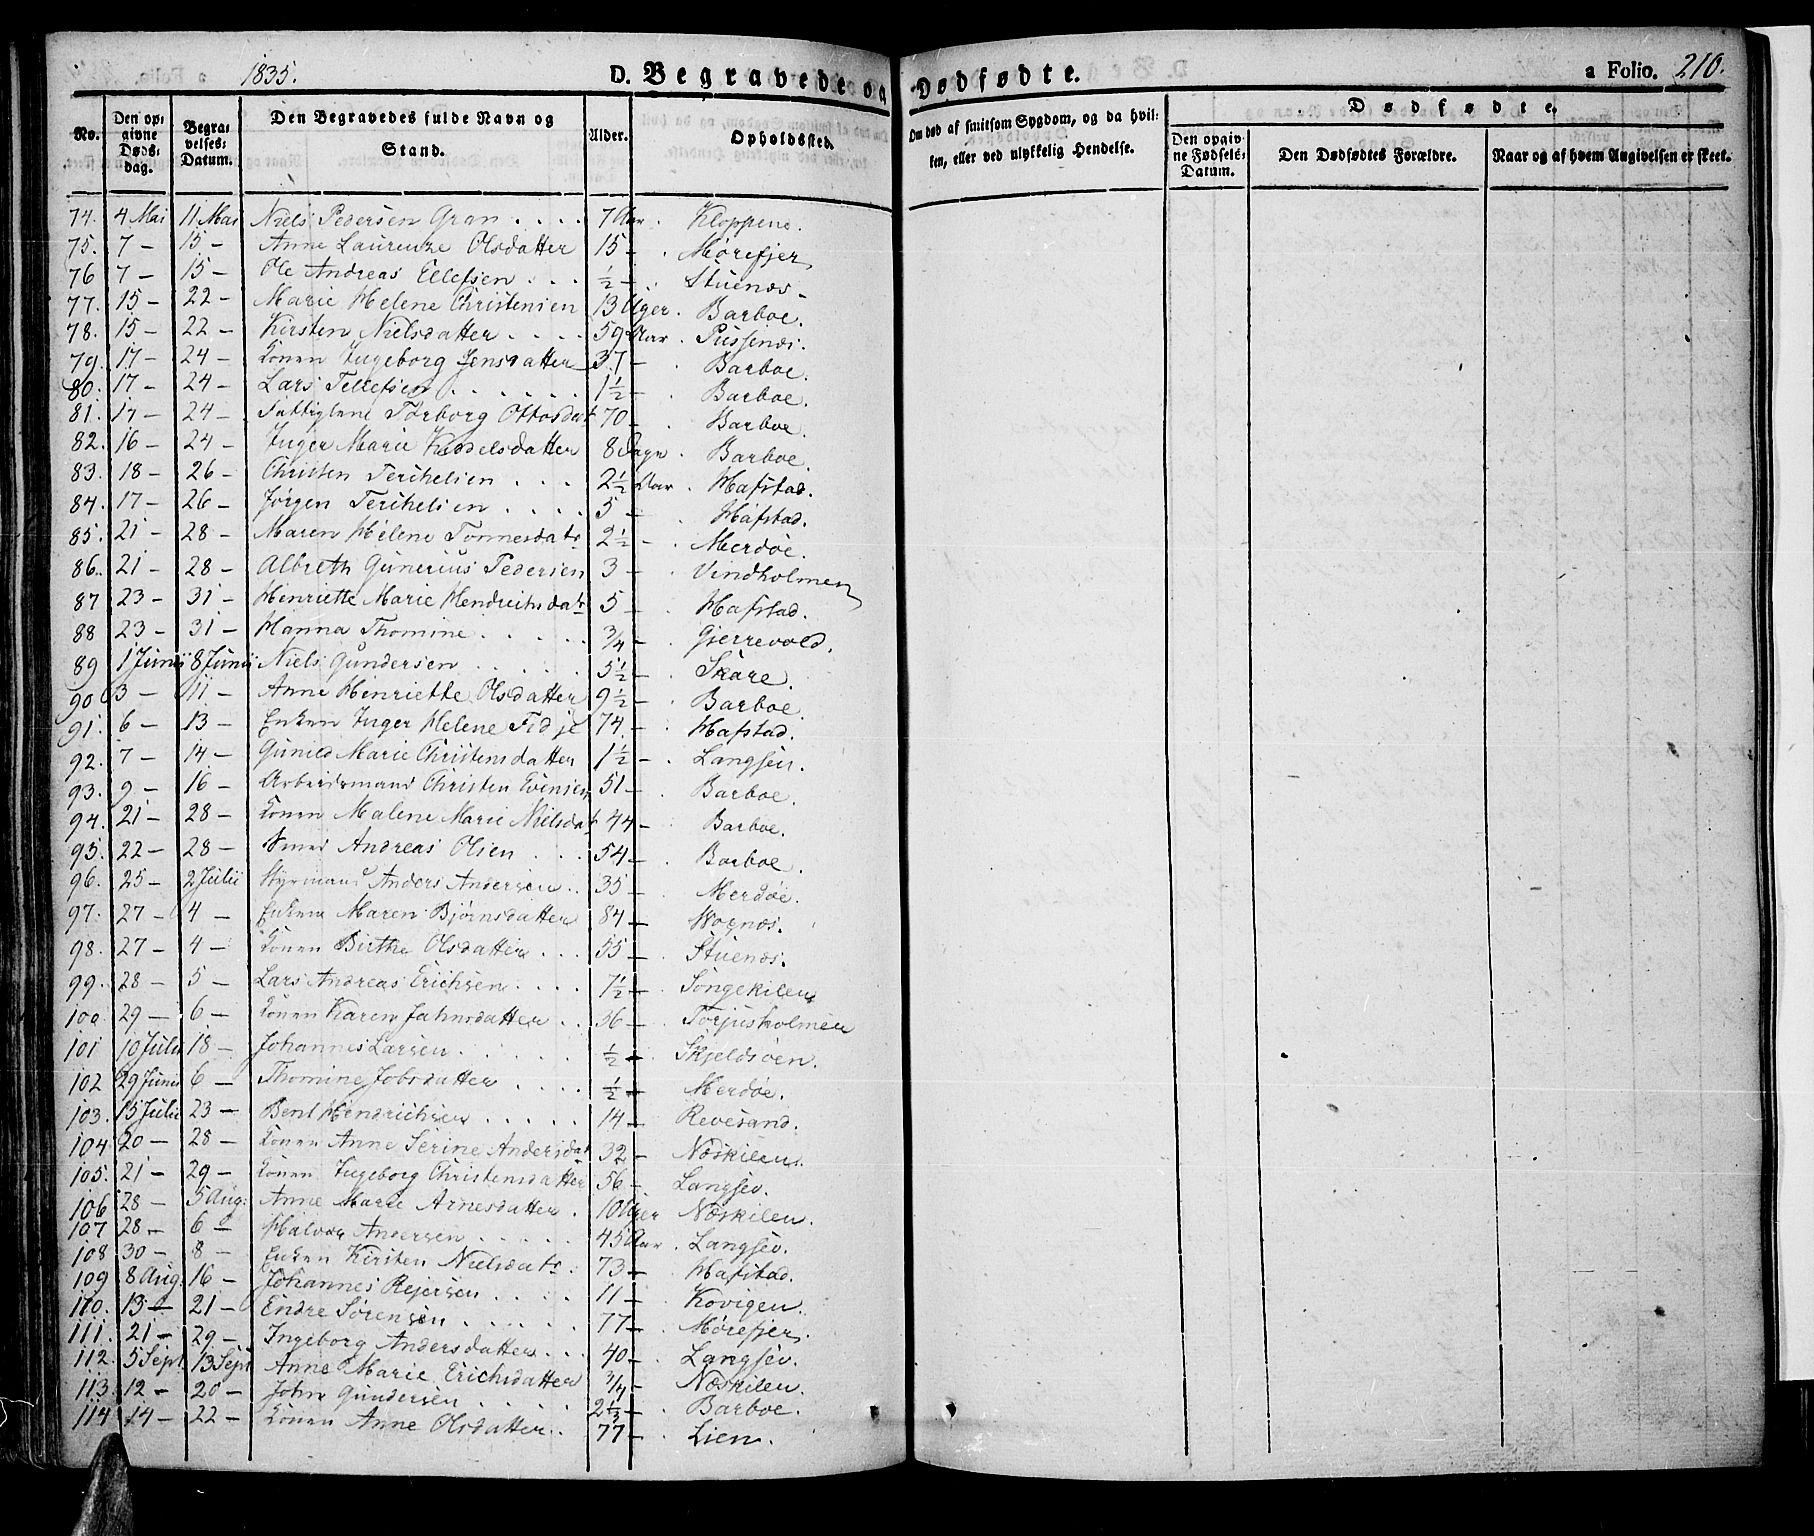 1835.
D. Begravede og Dødfødte.
a Folio. 210.
No.
Den opgivne Døds-dag.
Begravelses-Datum.
Den Begravedes fulde Navn og Stand.
Alder.
Opholdssted.
Om død af smitsom Sygdom, og da hvilken, eller ved ulykkelig Hendelse.
Dødfødte.
Den opgivne Fødsels-Datum.
Den Dødfødtes Forældre.
Naar og af hvem Angivelsen er skeet.
74. 4 Mai 11 Mai Niels Pedersen Gran . . . . 7 Aar. Kloppene.
75. 7 — 15 — Anne Laurenze Olsdatter 15 — . Mørefjer,
76 7 — 15 — Ole Andreas Ellefsen . . . ½ — . Stuenæs —
77. 15 — 22 — Marie Helene Christensen 13 Uger. Barboe.
78. 15 — 22 — Kirsten Nielsdatter . . . . 59 Aar . Pussenæs.
79. 17 — 24 — Konen Ingeborg Jensdatter 37 — . Barboe.
80. 17 — 24 — Lars Tellefsen . . . . . . 1½ — . Barboe.
81. 17 — 24 — Fattiglem Torborg Ottosdat 70 — . Barboe.
82. 16 — 24 — Inger Marie Keddelsdatter 8 Dage . Barboe.
83. 18 — 26 — Christen Terchelsen . . . 2½ Aar . Hafstad.
84. 17 — 26 — Jørgen Terchelsen . . . . 5 — . Hafstad.
85. 21 — 28 — Maren Helene Tønnesdatr 2½ — . Merdøe.
86. 21 — 28 — Albreth Gunerius Pedersen 3 — . Vindholmen
87 23 — 31 — Henriette Marie Hendrichsdatr 5 — . Hafstad.
88 23 — 31 — Hanna Thomine . . . . . ¾ — . Gjerrevold.
89 1 Junii 8 Junii Niels Gundersen . . . . . 5½ — . Skare.
90 3 — 11 — Anne Henriette Olsdatter 9½ — . Barboe.
91. 6 — 13 — Enken Inger Helene Fidje 74. — . Hafstad.
92. 7 — 14 — Gunild Marie Christensdatter 1½ — . Langsev.
93. 9 — 16 — Arbeidsmand Christen Evensen 51 — . Barboe.
94. 21 — 28 — Konen Malene Marie Nielsdat 44 — Barboe.
95. 22 — 28 — Andreas Olsen . . . 54 — . Barboe.
96. 25 — 2 Julii Styrmand Anders Andersen . . 35 — . Merdøe.
97. 27 — 4 — Enken Maren Bjørnsdatter 84 — . Wognæs.
98. 27 — 4 — Konen Birthe Olsdatter . . . 55 — . Stuenæs.
99. 28 — 5 — Lars Andreas Erichsen . . . . 7½ — . Songekilen,
100. 29 — 6 — Konen Karen Jahnsdatter . . 56 — . Torjusholmen
101 10 Julii 18 — Johannes Larsen . . . . . ½ — . Skjeldsøen.
102 29 Junii 6 — Thomine Jobsdatter . . . . ½ — . Merdøe.
103. 15 Julii 23 — Bent Hendrichsen . . . . . 14 — . Revesand.
104 20 — 28 — Konen Anne Serine Andersdat 32 — . Næskilen.
105. 21 — 29 — Konen Ingeborg Christensdatter 56 — . Langsev.
106 28 — 5 Aug: Anne Marie Arnesdatter . 10 Uger Næskilen.
107 28 — 6 — Halvor Andersen . . . . . 45 Aar . Langsev.
108 30 — 8 — Enken Kirsten Nielsdatr . 73 — . Hafstad.
109 8 Aug. 16 — Johannes Rejersen . . . . 11 — . Kovigen.
110. 13 — 21 — Endre Sørensen . . . . . 77 — . Mørefjer.
111. 21 — 29 — Ingeborg Andersdatter . . . 40 — . Langsev.
112. 5 Sept. 13 Sept Anne Marie Erichsdatter ¾ — . Næskilen.
113. 12 — 20 — John Gundersen . . . . . 2⅓ — . Barboe.
114 14 — 22 — Konen Anne Olsdatter . . 77 — . Lien.